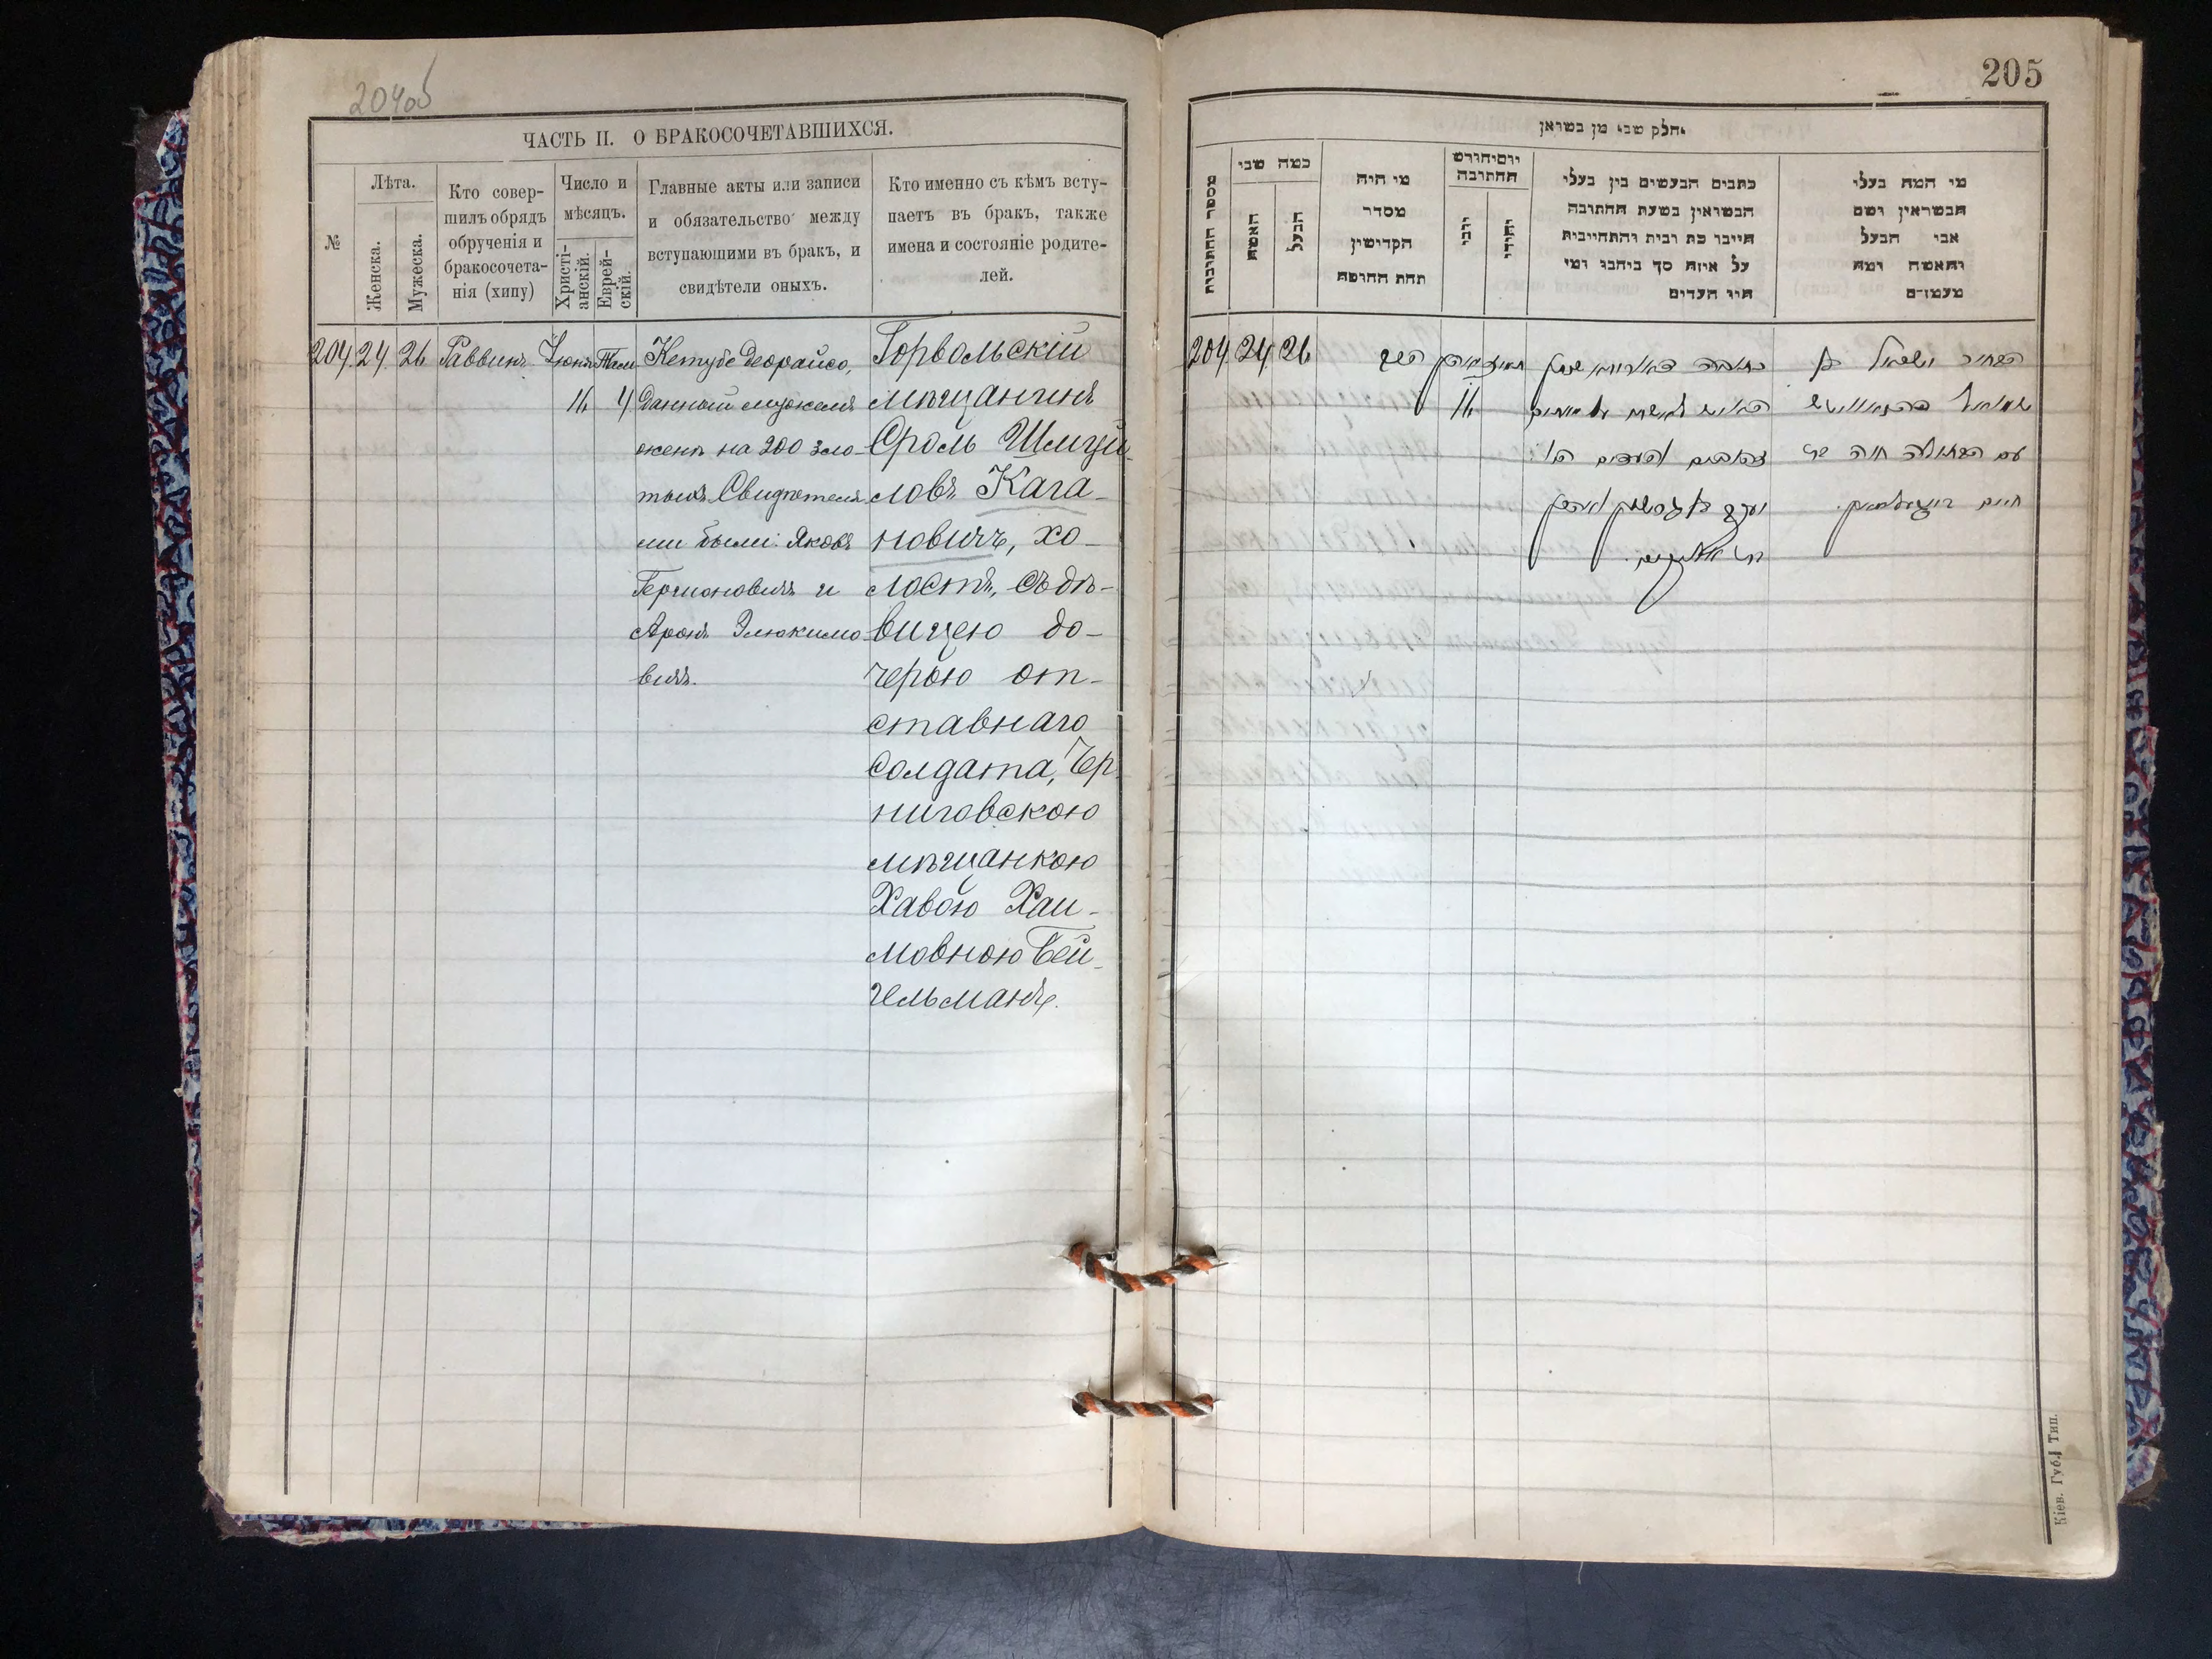 204об
205
ЧАСТЬ II. О БРАКОСОЧЕТАВШИХСЯ.
№
Лѣта.
Женска.
Мужеска.
Кто совер-
шилъ обрядъ
обрученія и
бракосочета-
нія (хипу)
Число и
мѣсяцъ.
Христі-
анскій.
Еврей-
скій.
Главные акты или записи
и обязательство между
вступающими въ бракъ, и
свидѣтели оныхъ.
Кто именно съ кѣмъ всту-
паетъ въ бракъ, также
имена и состояніе родите-
лей.
204. 24. 26 Раввинъ Іюнь
16 4
Кетубе Деорайсо,
Данный мужемъ
женѣ на 200 зло-
тыхъ. Свидѣтеля-
ми были: Яковъ
Гершоновичъ и
Аронъ Элюкимо
вичъ.
Горвольскій
мѣщанинъ
Сроль Шмуй-
ловъ Кага-
новичъ, хо-
лостъ, съ дѣ-
вицею до-
черью от-
ставнаго
солдата, Чер
ниговскою
мѣщанкою
Хавою Хаи-
мовною Бей-
гельманъ.
חלק שני מן נשואן
מספר החתונות
כמה שני
האשה
הבעל
מי היה
מסדר
הקדושין
תחת החופה
יום וחודש
החתונה
יוני
יהודי
כתבים הנעשים בין בעלי
הנשואין בשעת החתונה
היינו כת ובית והתחייבות
על איזה סך ביהבו ומי
היו העדים
מי המה בעלי
הנשואין ושם
אבי הבעל
והאשה ומה
מעמדם
204 24 26
16
הבחור ישראל בן
שמואל קאגאנאוויטש
עם הבתולה חוה בת
חיים בייגעלמאן.
Кіев. Губ. Тип.